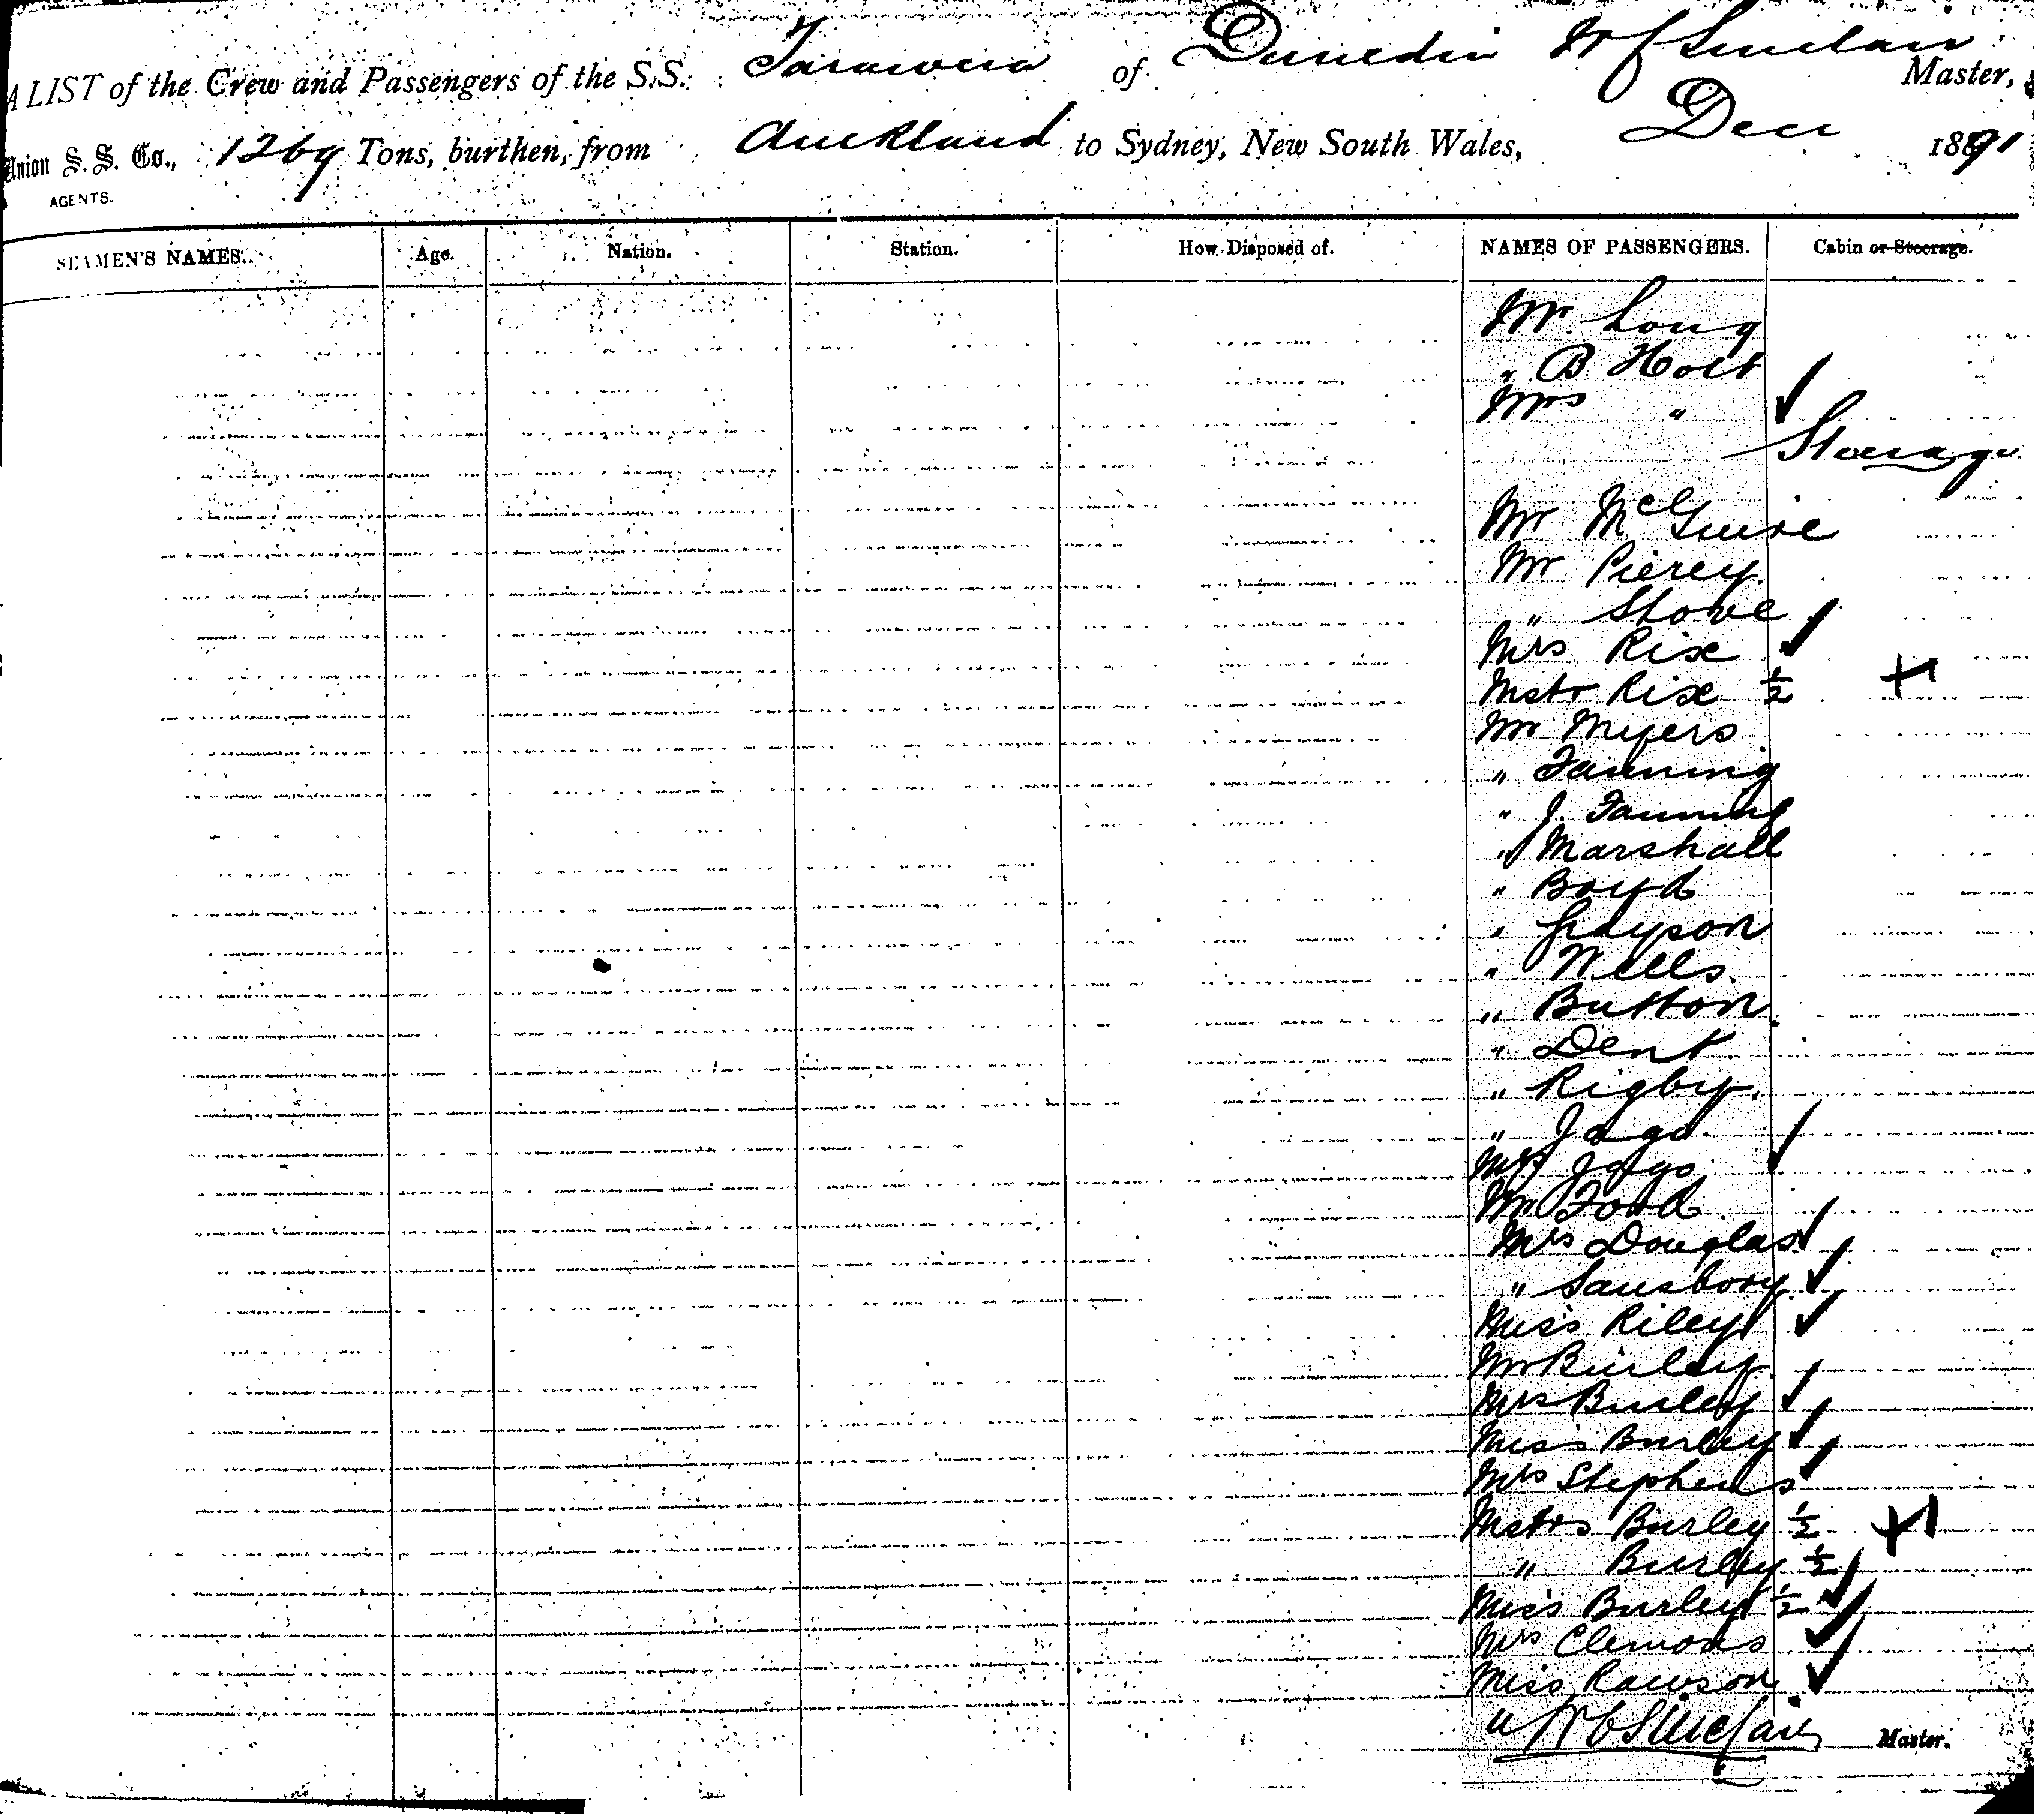 A LIST of the Crew and Passengers of the S.S. Tarawera of Dunedin W C Sinclair Master,
Union S. S. Co., 1269 Tons, burthen, from Auckland to Sydney, New South Wales, Dec 1891
AGENTS.
SEAMEN'S NAMES. Age. Nation. Station. How Disposed of. NAMES OF PASSENGERS. Cabin or Steerage.
Mr Long
" B Holt
Mrs "
Steerage
Mr McGuire
Mr Piercy
" Stove
Mrs Rix
Mstr Rix 1/2
Mr Myers
" Fanning
" J. Fanning
" Marshall
" Boyd
" Grayson
" Wells
" Button
" Dent
" Rigby
" Jago
Mrs Jago
Mr Ford
Mrs Douglas
" Sansbory
Miss Riley
Mr Burley
Mrs Burley
Miss Burley
Mrs Stephens
Mstrs Burley 1/2
" Burley 1/2
Miss Burley 1/2
Mrs Clemons
Miss Rawson
W C Sinclair Master.